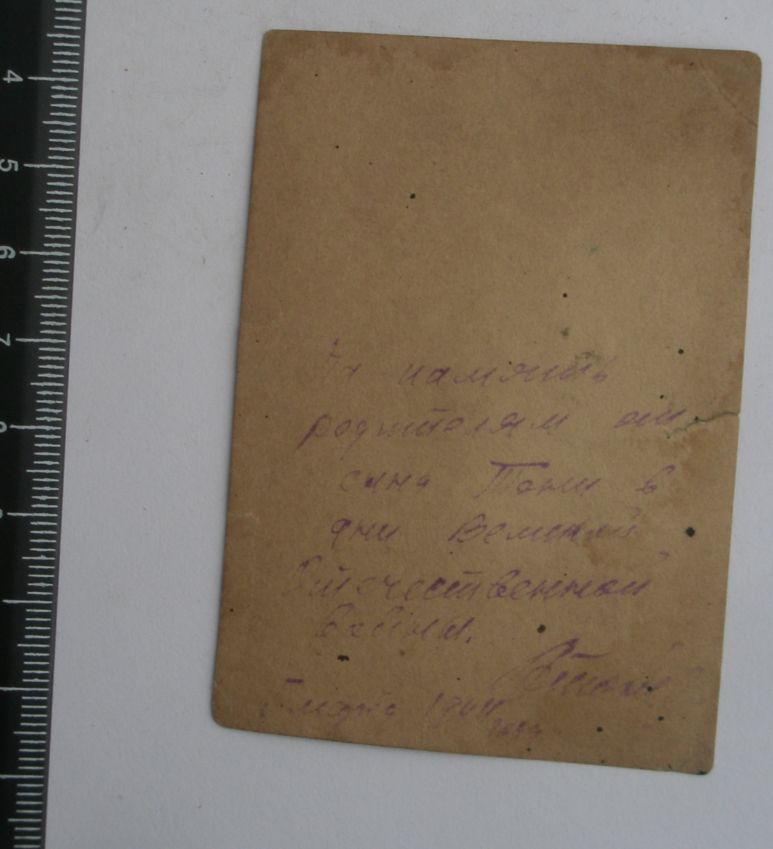 4
5
6
7
8
9
На память
родителям от
сына Тони в
дни Великой
Отечественной
войны.
марта 1944